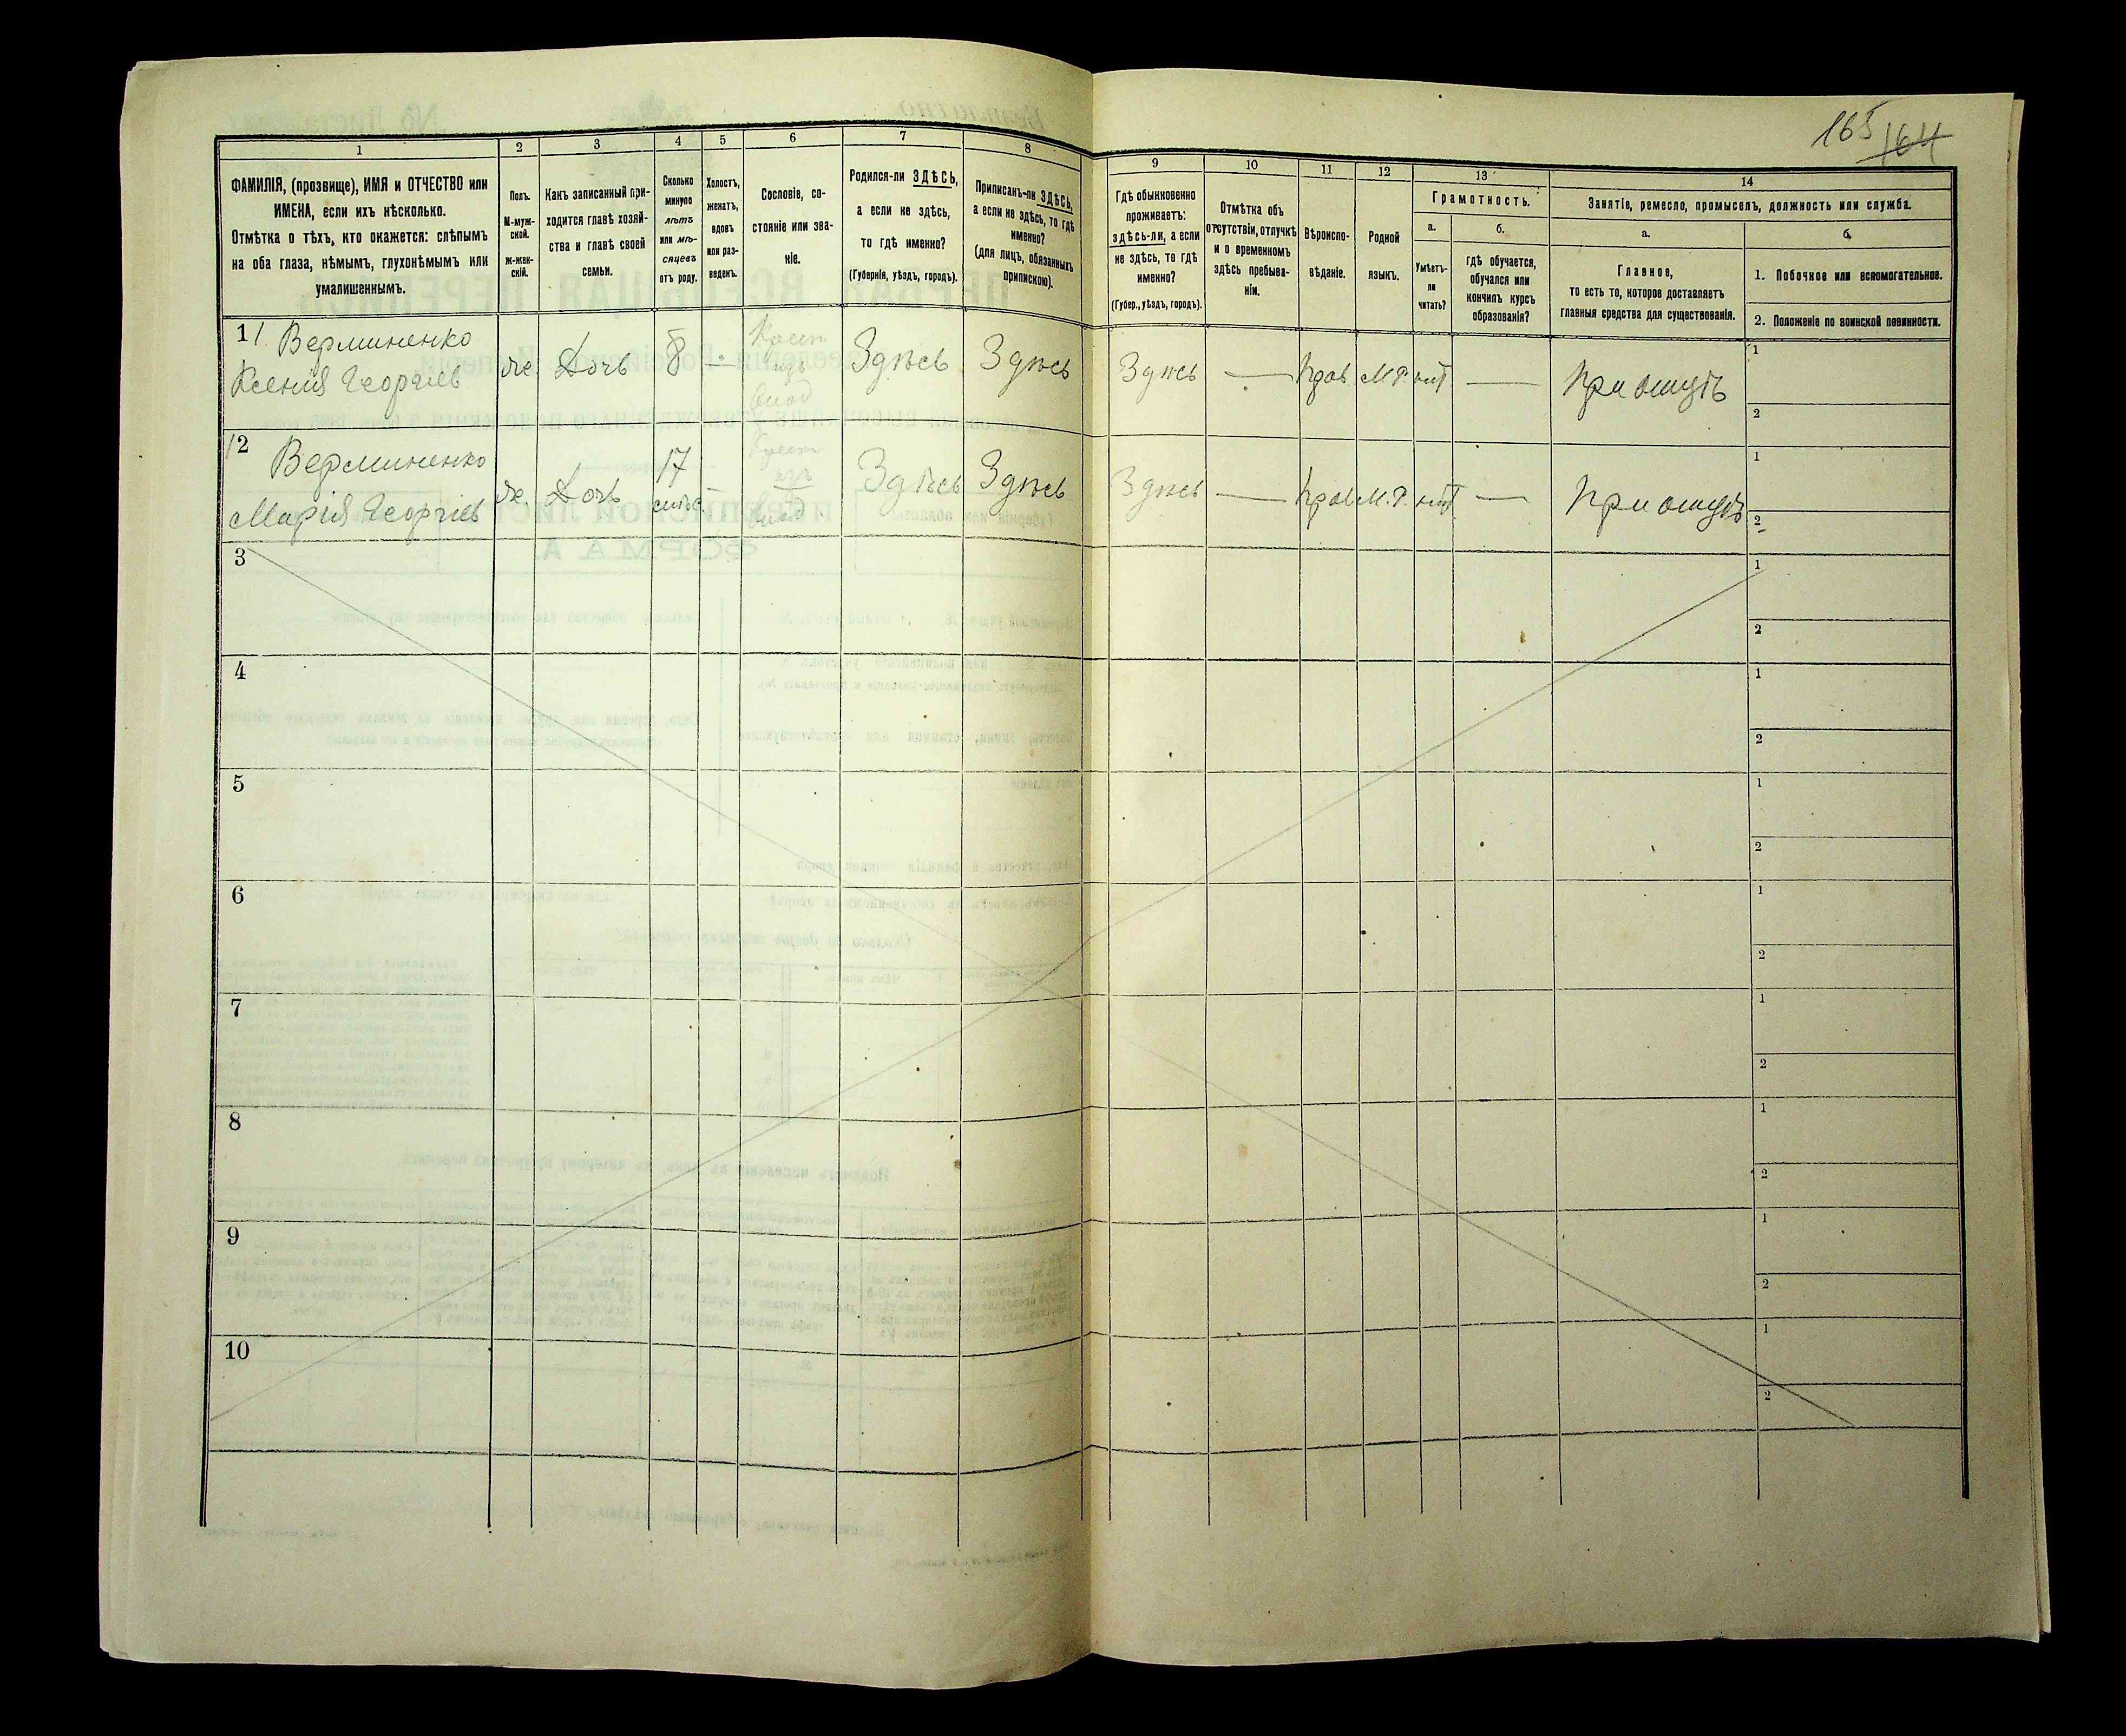 165 164
1
2
3
4
5
6
7
8
9
10
11
12
13
14
ФАМИЛІЯ, (прозвище), ИМЯ и ОТЧЕСТВО или
ИМЕНА, если ихъ нѣсколько.
Отмѣтка о тѣхъ, кто окажется: слѣпымъ
на оба глаза, нѣмымъ, глухонѣмымъ или
умалишеннымъ.
Полъ.
М-муж-
ской.
ж-жен-
скій.
Какъ записанный при-
ходится главѣ хозяй-
ства и главѣ своей
семьи.
Сколько
минуло
лѣтъ
или мѣ-
сяцевъ
отъ роду.
Холостъ,
женатъ,
вдовъ
или раз-
веденъ.
Сословіе, со-
стояніе или зва-
ніе.
Родился-ли ЗДѢСЬ,
а если не здѣсь,
то гдѣ именно?
(Губернія, уѣздъ, городъ).
Приписанъ-ли ЗДѢСЬ,
а если не здѣсь, то гдѣ
именно?
(для лицъ, обязанныхъ
припискою).
Гдѣ обыкновенно
проживаетъ:
здѣсь-ли, а если
не здѣсь, то гдѣ
именно?
(Губер., уѣздъ, городъ).
Отмѣтка объ
отсутствіи, отлучкѣ
и о временномъ
здѣсь пребыва-
ніи.
Вѣроиспо-
вѣданіе.
Родной
языкъ.
Грамотность.
а.
Умѣетъ-
ли
читать?
б.
гдѣ обучается,
обучался или
кончилъ курсъ
образованія?
Занятіе, ремесло, промыселъ, должность или служба.
а.
Главное,
то есть то, которое доставляетъ
главныя средства для существованія.
б.
1. Побочное или вспомогательное.
2. Положеніе по воинской повинности.
11 Верминенко
Ксенія Георгіев
же. Дочь 8 — Крест
изъ
Влад Здѣсь Здѣсь Здѣсь — Прав М.Р. нѣт — При отцѣ 1
2
12 Верминенко
Марія Георгіев
же. Дочь 17 — Крест
изъ
Влад Здѣсь Здѣсь Здѣсь — Прав М.Р. нѣт — При отцѣ 1
2
3 1
2
4 1
2
5 1
2
6 1
2
7 1
2
8 1
2
9 1
2
10 1
2